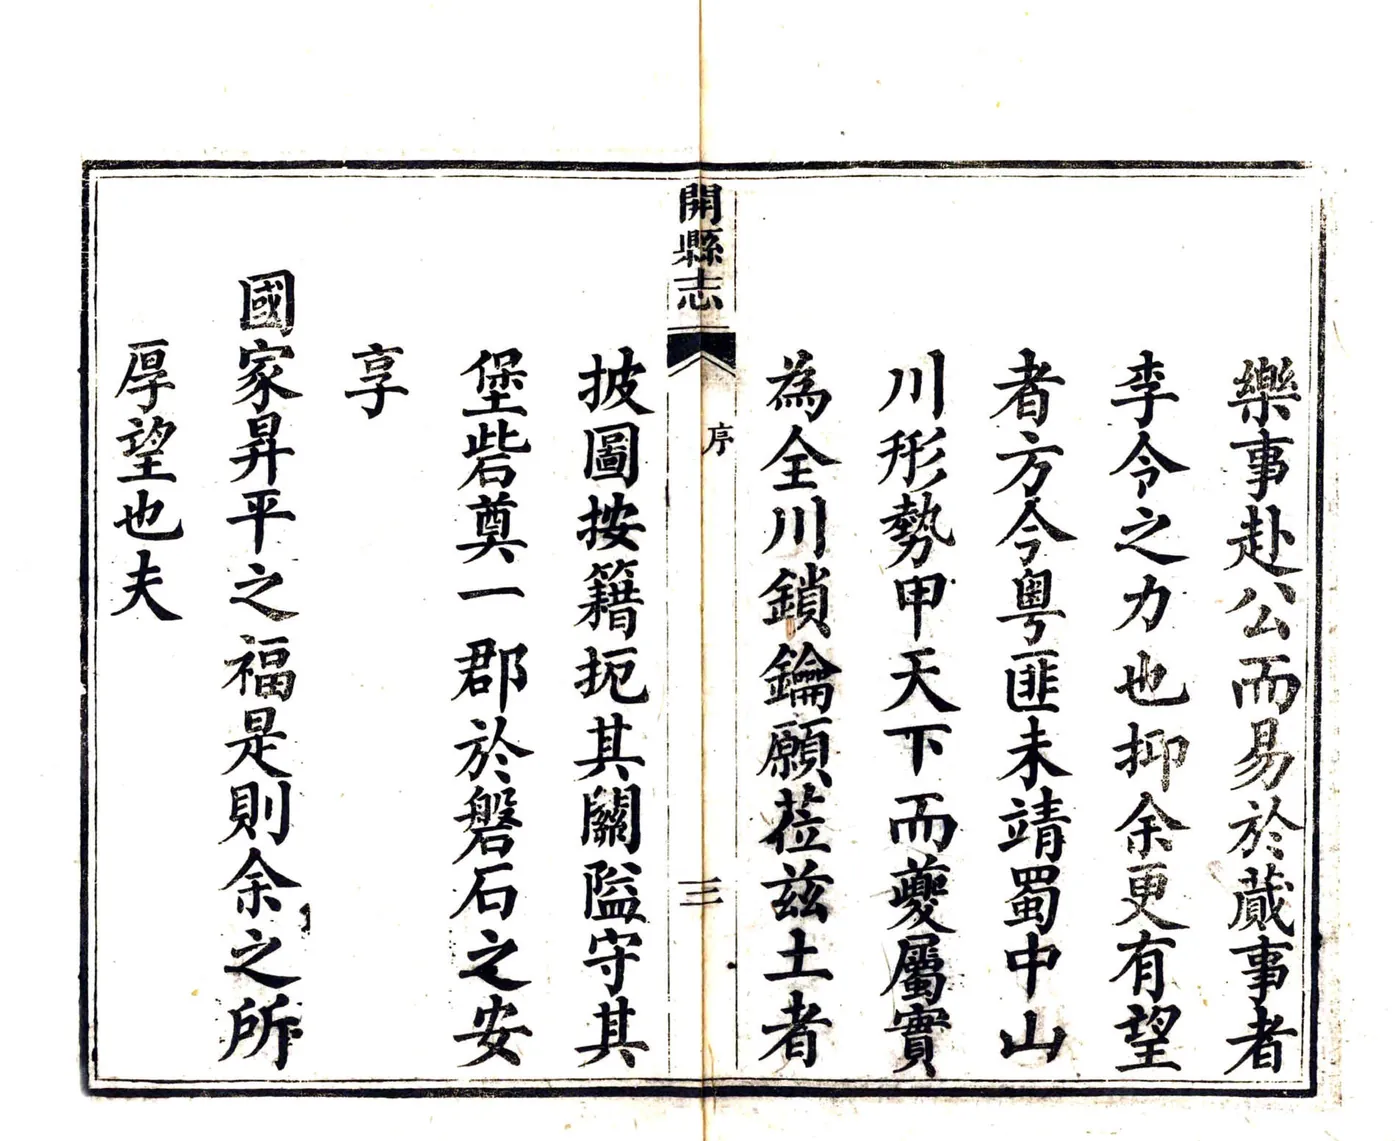 樂事赴公而易於蕆事者
李令之力也抑余更有望
者方今粵匪未靖蜀中山
川形勢甲天下而夔屬實
為全川鎖鑰願莅茲土者
開縣志
序
三
披圖按籍扼其關隘守其
堡砦奠一郡於磐石之安
享
國家昇平之福是則余之所
厚望也夫